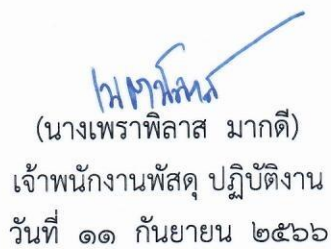 (นางเพราพิลาส มากดี)
เจ้าพนักงานพัสดุ ปฏิบัติงาน
วันที่ ๑๑ กันยายน ๒๕๖๖